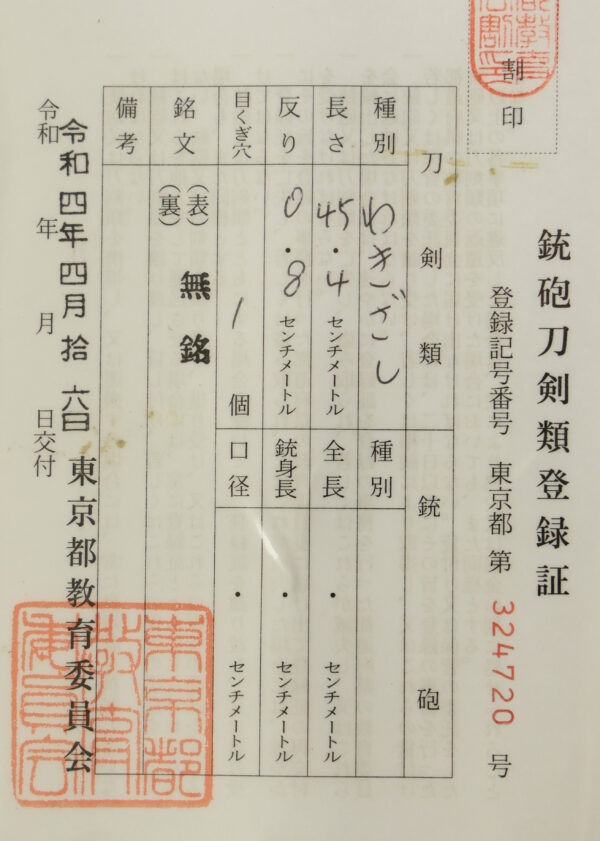 割印
銃砲刀剣類登録証
登録記号番号 東京都 第 324720 号
刀剣類
銃砲
種別 わきざし
種別
長さ 45・4 センチメートル
全長 ・ センチメートル
反り 0・8 センチメートル
銃身長 ・ センチメートル
目くぎ穴 1 個
口径 ・ センチメートル
銘文 (表) 無銘
(裏)
備考
令和四年四月拾六日
令和 年 月 日交付
東京都教育委員会
東京都教育委員会